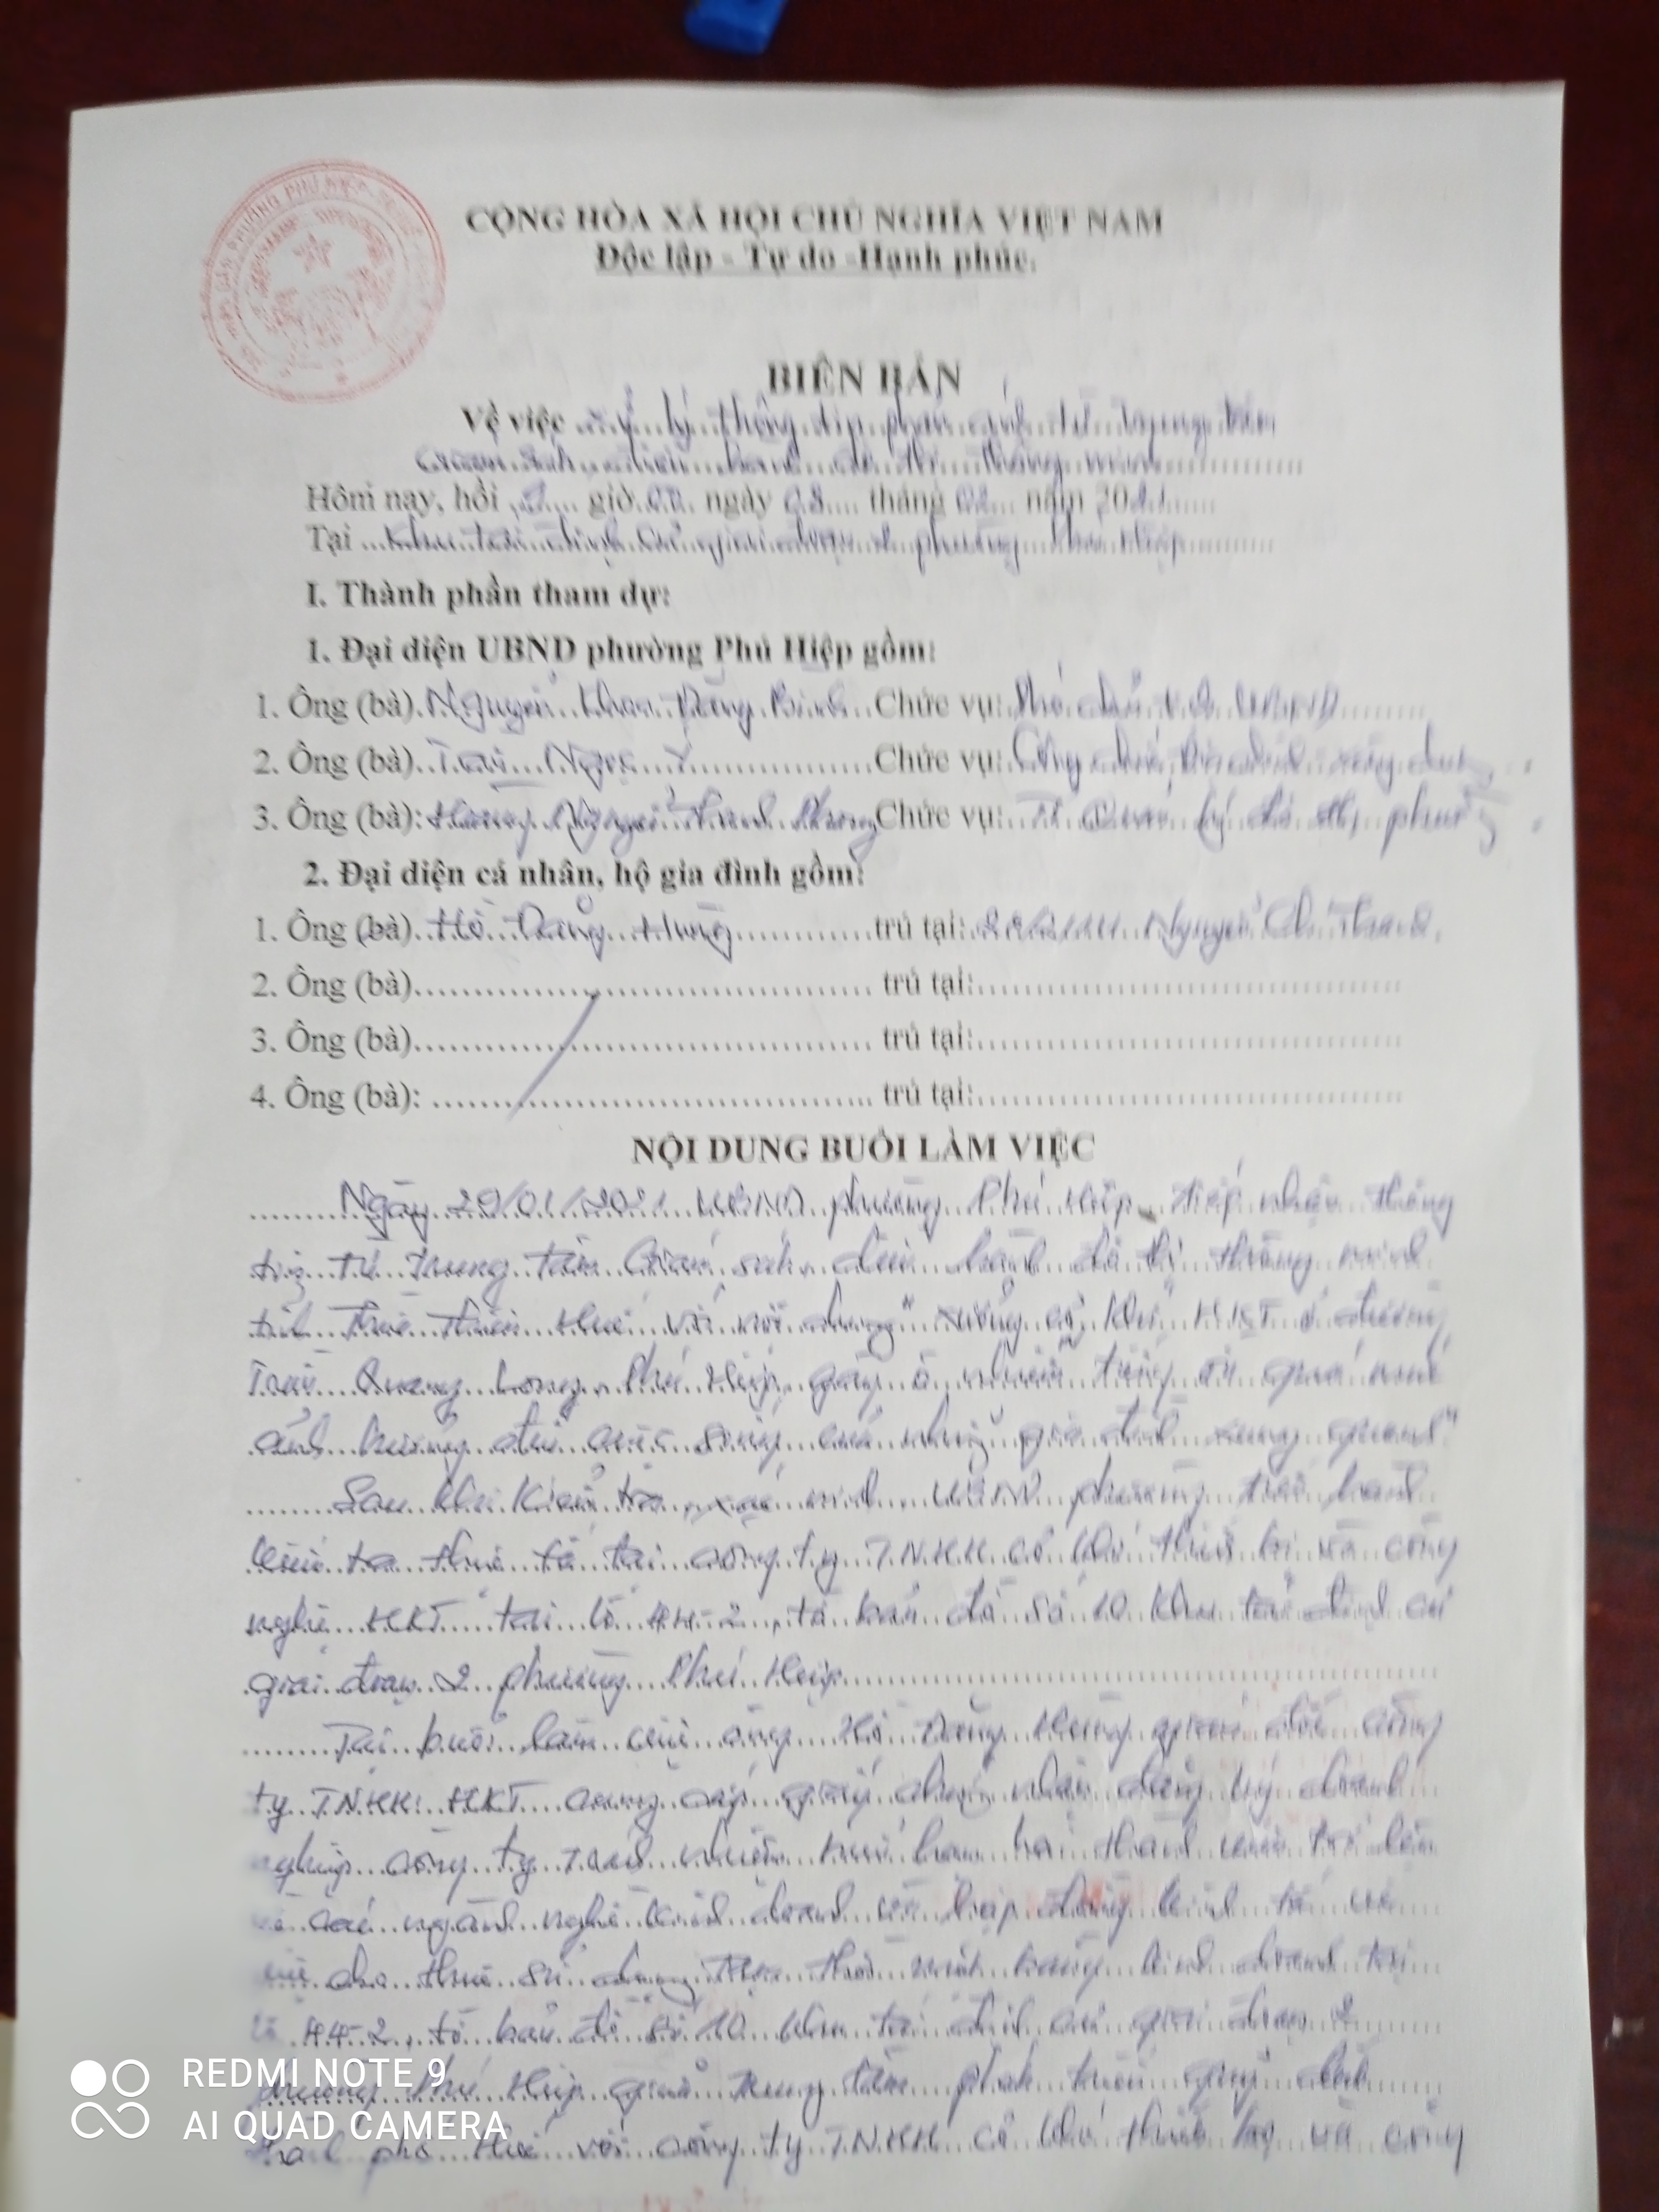 CỘNG HÒA XÃ HỘI CHỦ NGHĨA VIỆT NAM
Độc lập - Tự do -Hạnh phúc.
BIÊN BẢN
Về việc xử lý thông tin phản ánh từ Trung tâm
Giám sát, điều hành đô thị thông minh
Hôm nay, hồi giờ 00 ngày 08 tháng 02 năm 2021
Tại Khu tái định cư giai đoạn 2 phường Phú Hiệp
I. Thành phần tham dự:
1. Đại diện UBND phường Phú Hiệp gồm:
1. Ông (bà) Nguyễn Đăng Bình Chức vụ: Phó chủ tịch UBND
2. Ông (bà) Trần Ngọc Ý Chức vụ: Công chức địa chính xây dựng
3. Ông (bà): Hoàng Nguyễn Thanh Phong Chức vụ: Quản lý đô thị phường
2. Đại diện cá nhân, hộ gia đình gồm:
1. Ông (bà) Hồ Đăng Hưng trú tại: Nguyễn Chí Thanh
2. Ông (bà) trú tại:
3. Ông (bà) trú tại:
4. Ông (bà): trú tại:
NỘI DUNG BUỔI LÀM VIỆC
Ngày 29/01/2021 UBND phường Phú Hiệp tiếp nhận thông
tin từ Trung tâm Giám sát, điều hành đô thị thông minh
tỉnh Thừa Thiên Huế với nội dung "Xưởng cơ khí HKT ở đường
Trần Quang Long, Phú Hiệp, gây ô nhiễm tiếng ồn quá mức
ảnh hưởng đến cuộc sống của những gia đình xung quanh"
Sau khi kiểm tra, xác minh, UBND phường tiến hành
kiểm tra thực tế tại công ty TNHH cơ khí thiết bị và công
nghệ HKT tại lô HH-2, tờ bản đồ số 10 Khu tái định cư
giai đoạn 2 phường Phú Hiệp
Tại buổi làm việc ông Hồ Đăng Hưng giám đốc công
ty TNHH HKT cung cấp giấy chứng nhận đăng ký doanh
nghiệp công ty trách nhiệm hữu hạn hai thành viên trở lên
các ngành nghề kinh doanh và hợp đồng kinh tế về
việc cho thuê sử dụng tạm thời mặt bằng kinh doanh tại
lô HH-2, tờ bản đồ số 10 Khu tái định cư giai đoạn 2
phường Phú Hiệp giữa Trung tâm phát triển quỹ đất
thành phố Huế với công ty TNHH cơ khí thiết bị và công
REDMI NOTE 9
AI QUAD CAMERA